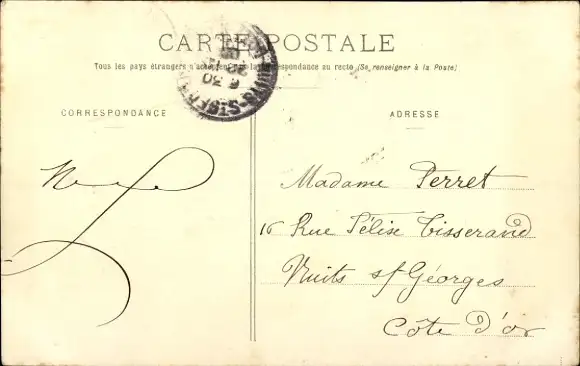 CARTE POSTALE
Tous les pays étrangers n'acceptent pas la correspondance au recto (Se renseigner à la Poste)
CORRESPONDANCE
ADRESSE
Madame Perret
16 Rue Félise Tisserand
Nuits s/ Géorges
Côte d'or